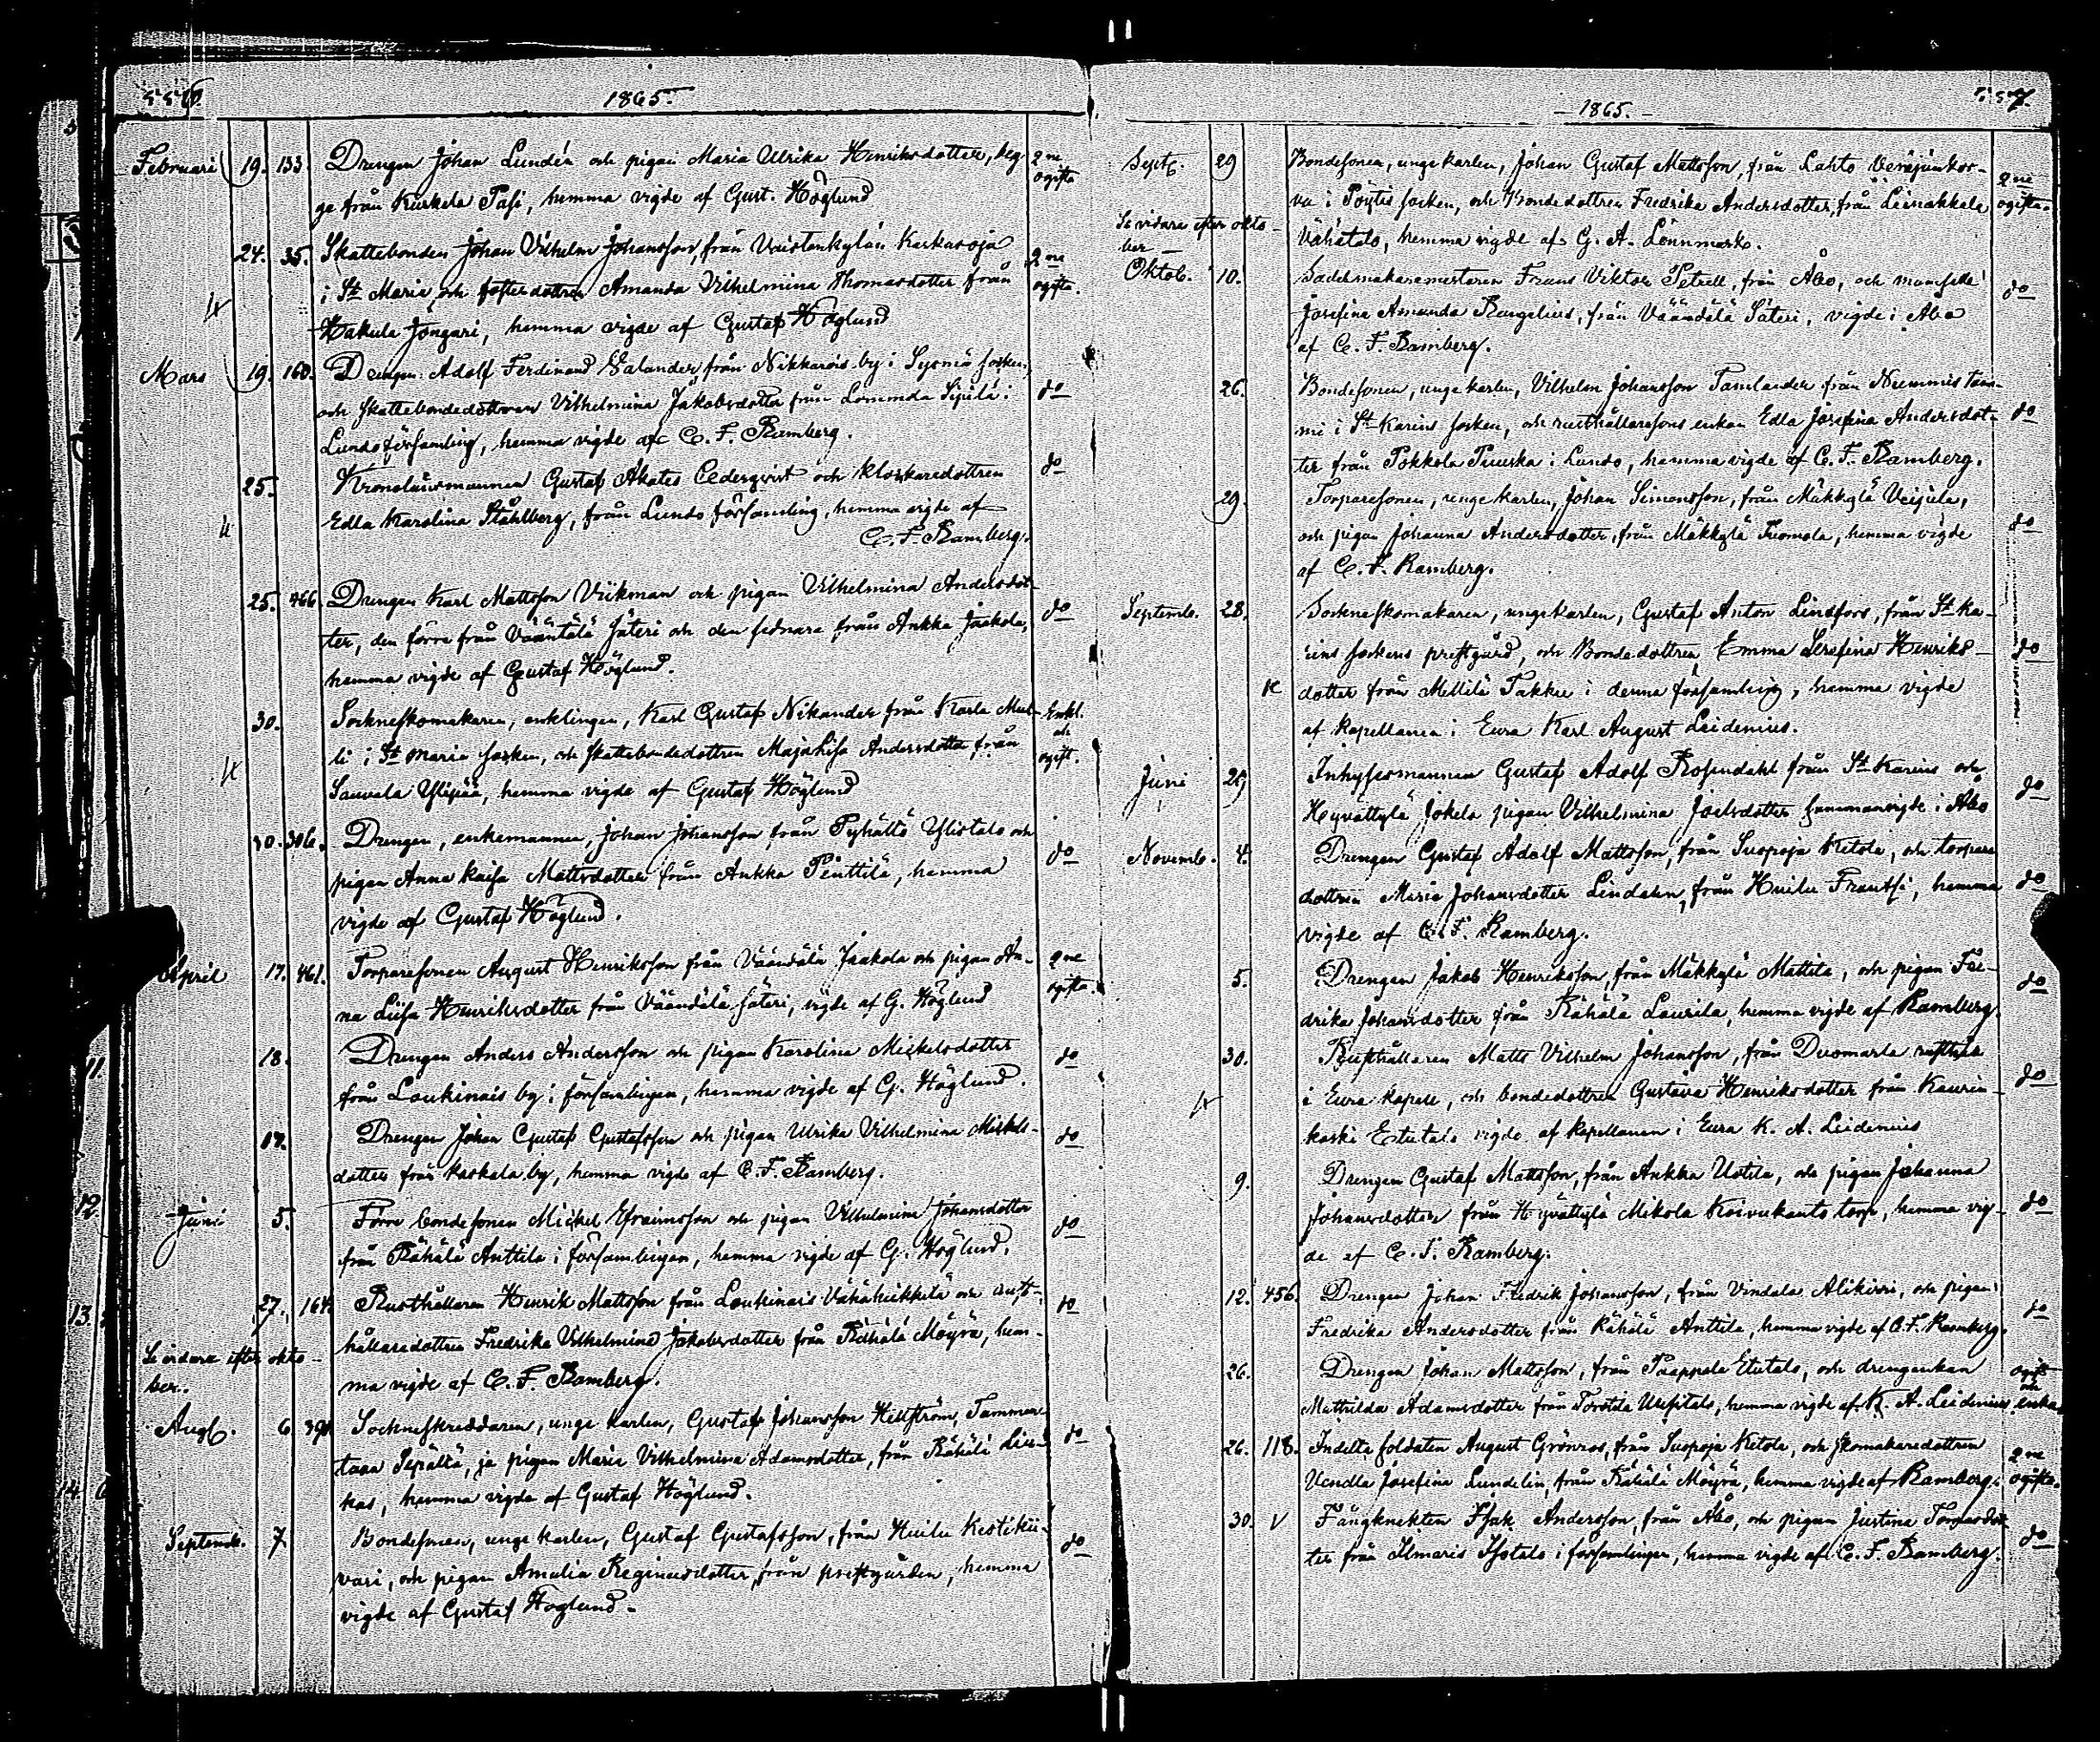 556.
1865.
Februari 19. 133. Drengen Johan Lundén och pigan Maria Ulrika Henriksdotter, beg- 2ne
ge från Kurkela Pasi, hemma vigde af Gust. Höglund ogifta
24. 35. Skattebonden Johan Vilhelm Johansson, från Karkaroja 2ne
i St Marie och fosterdottren Amanda Vilhelmina Thomasdotter från ogifta.
Hakula Jöngari, hemma vigde af Gustaf Höglund
Mars 19. 160. Drengen Adolf Ferdinand Salander från by i socken,
och skattebondedottren Vilhelmina Jakobsdotter från Sipilä i do
Lundo församling, hemma vigde af C. F. Ramberg.
25. Kronolänsmannen Gustaf Akates Cederqvist och klockaredottren do
Edla Karolina Ståhlberg, från Lundo församling, hemma vigde af
C. F. Ramberg.
25. 466. Drengen Karl Mattsson Viikman och pigan Vilhelmina Andersdot-
ter, den förre från Väantälä Säteri och den sednare från Ankka Jaakola, do
hemma vigde af Gustaf Höglund.
30. Sockneskomakaren, enklingen, Karl Gustaf Nikander från Karla Mul- Enkl.
li i St Marie socken, och skattebondedottren Maja Lisa Andersdotter från och ogift.
Sauvala Ylipää, hemma vigde af Gustaf Höglund
30. 306. Drengen, enkemannen, Johan Johansson, från Pyhältö Ylistalo och
pigan Anna Kaisa Mattsdotter från Ankka Penttilä, hemma do
vigde af Gustaf Höglund.
April 17. 461. Torparesonen August Henriksson från Väandälä Jaakola och pigan An- 2ne
na Liisa Henriksdotter från Väandälä Säteri, vigde af G. Höglund ogifta.
18. Drengen Anders Andersson och pigan Karolina Mickelsdotter do
från Loukinais by i församlingen, hemma vigde af G. Höglund.
17. Drengen Johan Gustaf Gustafsson och pigan Ulrika Vilhelmina Mickels- do
dotter från Kaskala by, hemma vigde af C. F. Ramberg.
Juni 5. Förre bondesonen Mickel Efraimsson och pigan Vilhelmina Johansdotter do
från Rähälä Anttila i församlingen, hemma vigde af G. Höglund.
27. 164. Rusthållaren Henrik Mattsson från Loukinais Vähäheikkilä och rust- do
hållaredottren Fredrika Vilhelmina Jakobsdotter från Rähälä Möyrä, hem-
Se vidare efter okto- ma vigde af C. F. Ramberg.
ber.
Aug. 6. Sockneskräddaren, unge karlen, Gustaf Johansson Hellström, Tammen-
taka Sepältä, ja pigan Maria Vilhelmina Adamsdotter, från Rähälä do
kas, hemma vigde af Gustaf Höglund.
Septemb. 7 Bondesonen, unge karlen, Gustaf Gustafsson, från Huilu Kestikii- do
vari, och pigan Amalia Reginasdotter, från prestgården, hemma
vigde af Gustaf Höglund.
557.
1865.
Septb. 29 Bondesonen, unge karlen, Johan Gustaf Mattsson, från Lahto 2ne
va i Pöytis socken, och Bondedottren Fredrika Andersdotter, från Liinakkala ogifta.
Se vidare efter okto- Vähätalo, hemma vigde af G. A. Lönnmark.
ber
Oktob. 10. Sadelmakaremestaren Frans Viktor Petrell, från Åbo, och mamsell do
Josefina Amanda Rengelius, från Väändälä Säteri, vigde i Åbo
af C. F. Ramberg.
26. Bondesonen, unge karlen, Vilhelm Johansson Tamlander från Nummis Tam-
mi i St Karins socken, och rusthållaresons enkan Edla Josefina Andersdot- do
ter från Pokkola Punska i Lundo, hemma vigde af C. F. Ramberg.
29. Torparesonen, unge karlen, Johan Simonsson, från Mäkkylä Veijula,
och pigan Johanna Andersdotter, från Mäkkylä Tuomola, hemma vigde do
af C. F. Ramberg.
Septemb. 28. Sockneskomakaren, unge karlen, Gustaf Anton Lindfors, från St Ka-
rins sockens prestgård, och Bondedottren, Emma Serafina Henriks- do
dotter från Mellilä Takku i denna församling, hemma vigde
af kapellanen i Eura Karl August Leidenius.
Juni 29 Inhysesmannen Gustaf Adolf Rosendahl från St Karins och do
Hyvättylä Jokela pigan Vilhelmina Joelsdotter sammanvigde i Åbo
Novemb. 4. Drengen Gustaf Adolf Mattsson, från Suopoja Ketola, och torpare
dottren Maria Johansdotter Lindahn, från Huilu Frantsi, hemma do
vigde af C. F. Ramberg.
5. Drengen Jakob Henriksson, från Mäkkylä Mattila, och pigan Fre- do
drika Johansdotter från Rähälä Laurila, hemma vigde af Ramberg.
30. Rusthållaren Matts Vilhelm Johansson, från Duomarla rusthåll
i Eura kapell, och bondedottren Gustava Henriksdotter från Kaurin- do
koski Etutalo vigde af kapellanen i Eura K. A. Leidenius
9. Drengen Gustaf Mattsson, från Ankka Uotila, och pigan Johanna
Johansdotter från Hyvättylä Mikola Koivukanto torp, hemma vig- do
de af C. F. Ramberg.
12. 456. Drengen Johan Fredrik Johansson, från Vindala Alikirri, och pigan do
Fredrika Andersdotter från Rähälä Anttila, hemma vigde af C. F. Ramberg.
26. Drengen Johan Mattsson, från Paappala Etutalo, och drengenkan ogift
och
Mathilda Adamsdotter från Torstila Uusitalo, hemma vigde af K. A. Leidenius. enka.
26. 118. Indelta soldaten August Grönroos, från Suopoja Ketola, och skomakaredottren 2ne
Vendla Josefina Lundelin, från Rähälä Möyrä, hemma vigde af Ramberg. ogifta.
30. V Fångknekten Isak Andersson, från Åbo, och pigan Justina Tomasdot- do
ter från Ilmaris Isotalo i församlingen, hemma vigde af C. F. Ramberg.